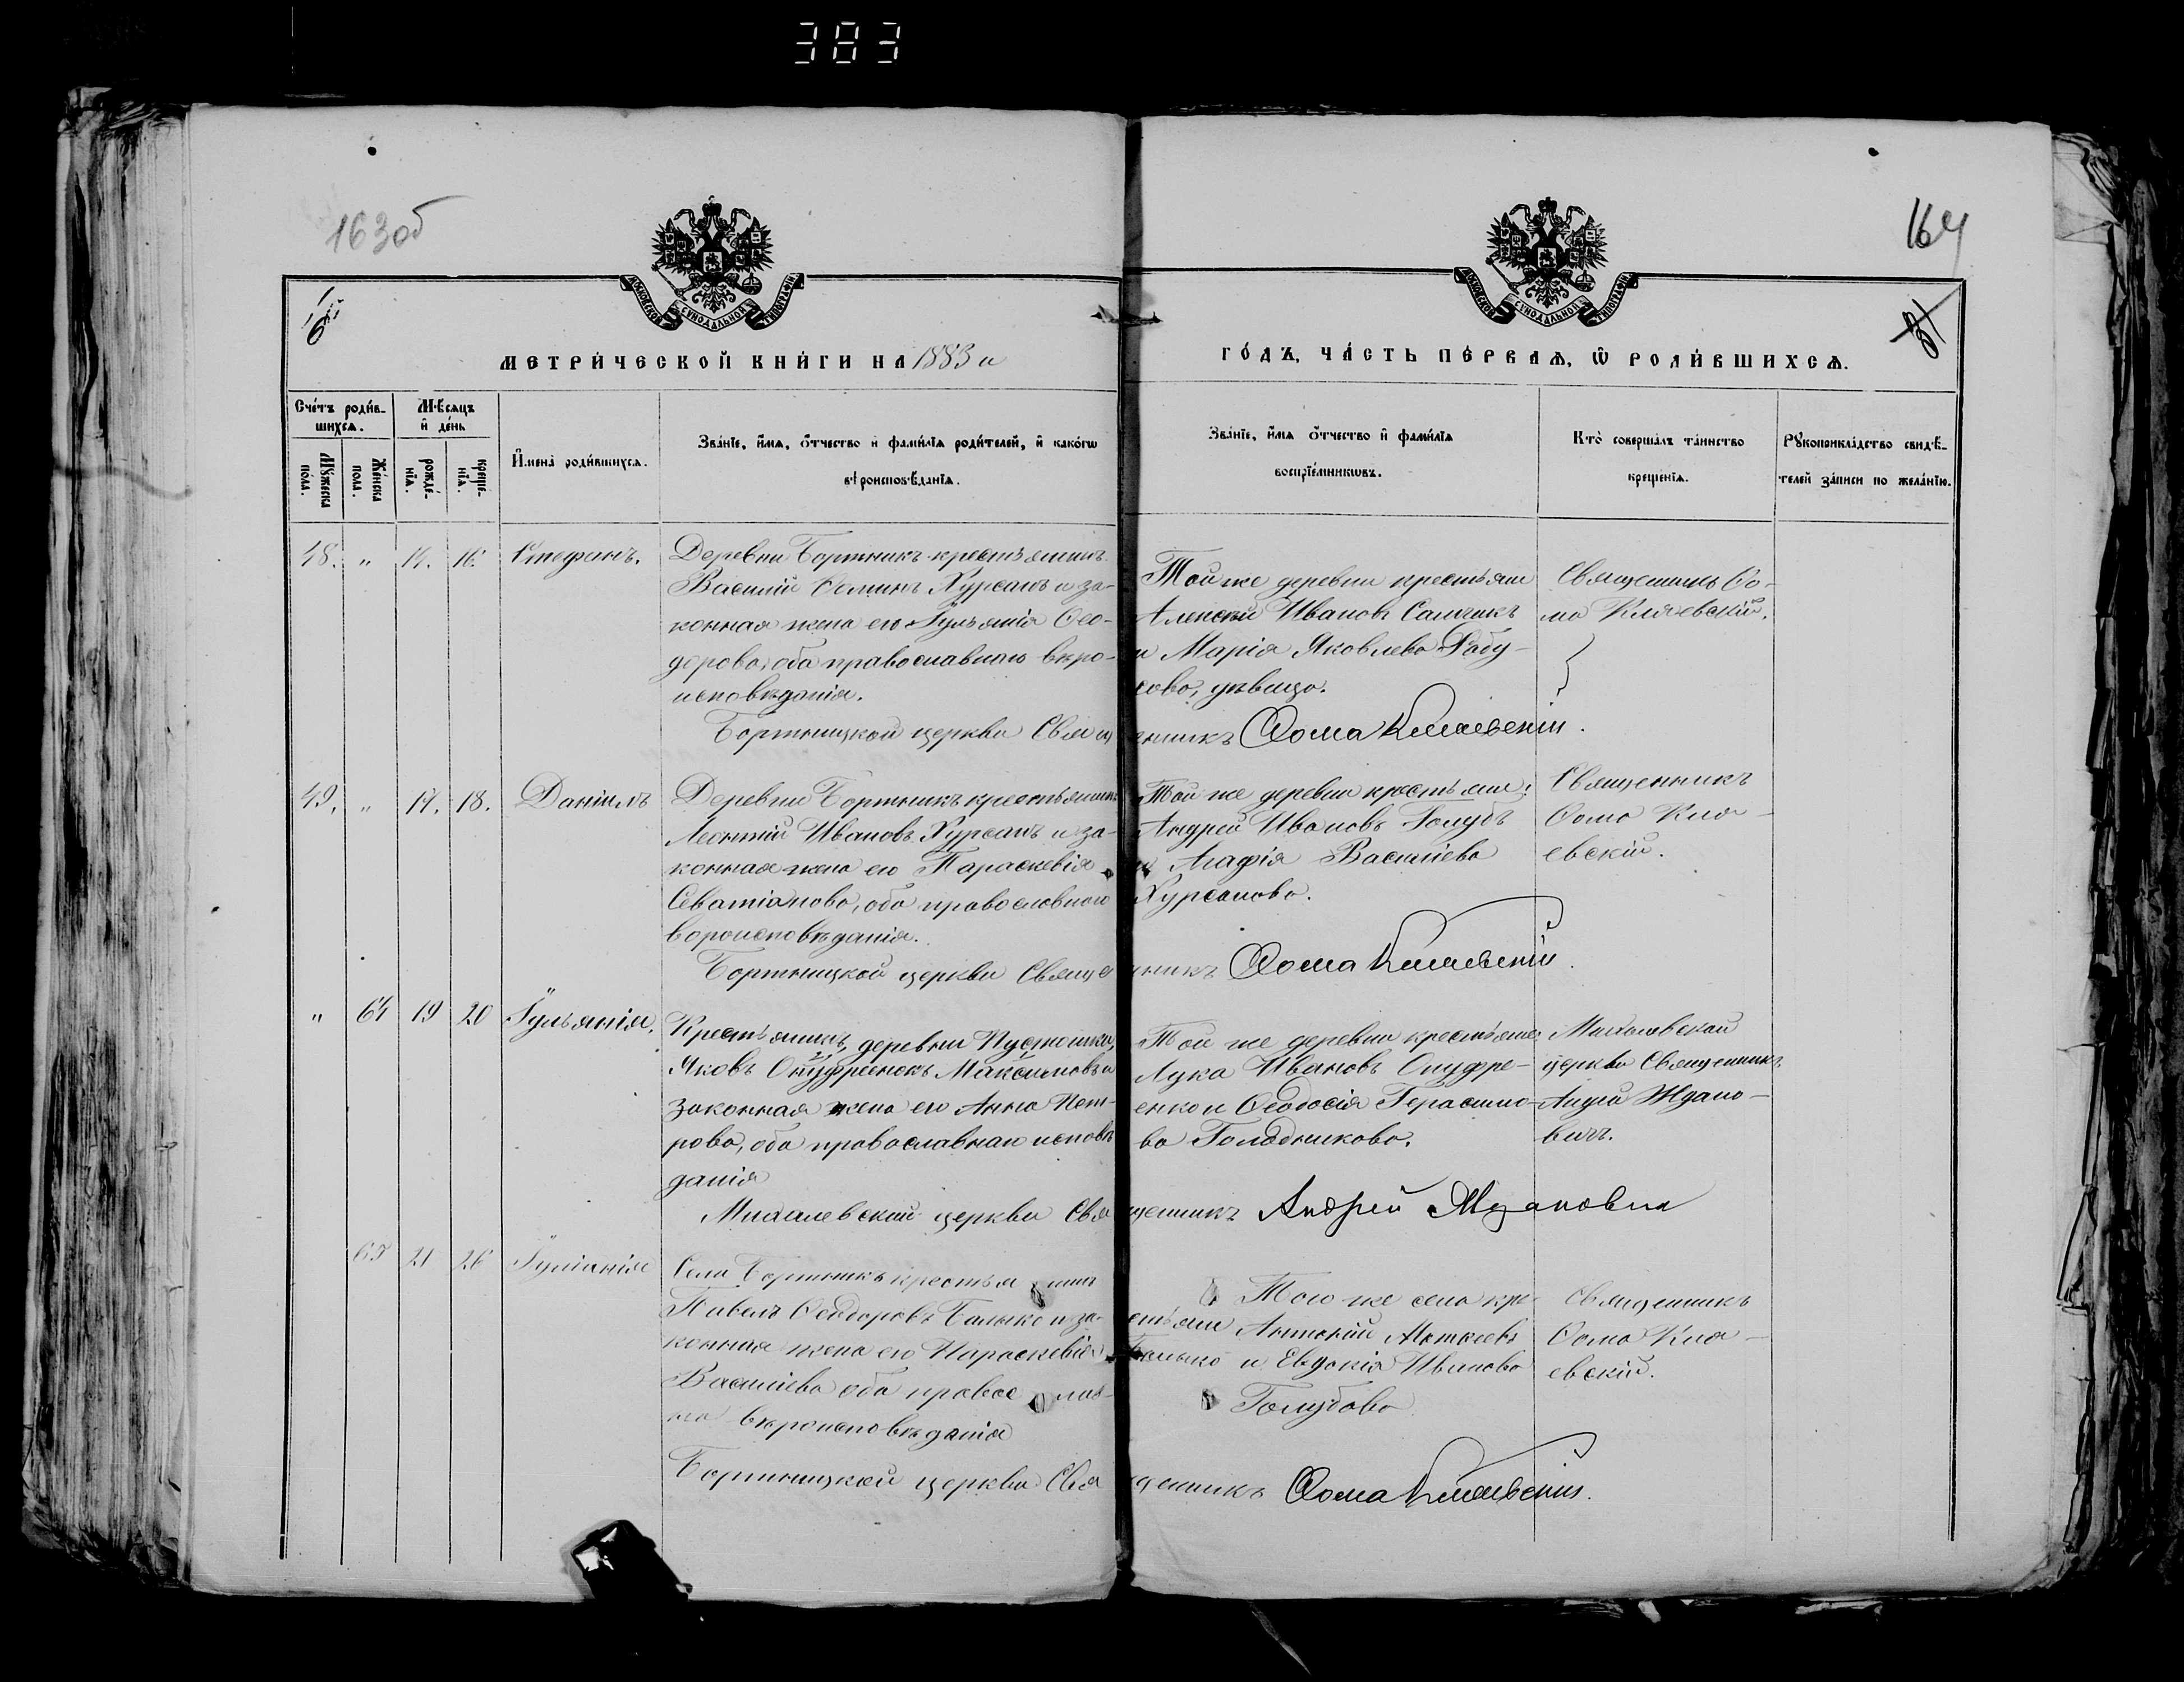 383
163об
164
МОСКОВСКОЙ СѴНОДАЛЬНОЙ ТИПОГРАФІИ
МОСКОВСКОЙ СѴНОДАЛЬНОЙ ТИПОГРАФІИ
МЕТРИ́ЧЕСКОЙ КНИ́ГИ НА 1883 й
ГО́ДЪ, ЧА́СТЬ ПЕ́РВАѦ, Ѿ РОДИ́ВШИХСѦ.
Сче́тъ роди́в-
шихсѧ.
Мꙋ́жеска по́ла.
Же́нска пола.
Мѣсѧцъ
и҆ де́нь
рожде́-
нїѧ.
креще́-
нїѧ.
И҆мена̀ роди́вшихсѧ.
Зва́нїе, и҆́мѧ, о҆́тчество и҆ фами́лїѧ роди́телей, и҆ како́гѡ
вѣроисповѣданїѧ.
Зва́нїе, и҆́мѧ о҆́тчество и҆ фами́лїѧ
воспрїе́мникѡвъ.
Кто̀ соверша́лъ та́инство
креще́нїѧ.
Рꙋкоприкла́дство свидѣ-
телей за́писи по жела́нїю.
48. " 14. 16. Стефанъ.
Деревни Бортникъ крестьянинъ
Василій Ѳоминъ Хурсанъ и за-
конная жена его Іульянія Ѳео-
дорова, оба православнаго вѣро-
исповѣданія.
Той же деревни крестьяне
Алексѣй Ивановъ
и Марія Яковлева
сова, дѣвица.
Священникъ Ѳо-
ма Кляевскій.
Бортницкой церкви Священникъ Ѳома Кляевскій.
49. " 17. 18. Даніилъ
Деревни Бортникъ крестьянинъ
Леонтій Ивановъ Хурсанъ и за-
конная жена его Параскевія
Севатіанова, оба православнаго
вѣроисповѣданія.
Той же деревни крестьяне:
Андрей Ивановъ Голубъ
и Агафія Василіева
Хурсанова.
Священникъ
Ѳома Кля-
евскій.
Бортницкой церкви Священникъ Ѳома Кляевскій.
" 64 19 20 Іульянія.
Крестьянинъ деревни Пустошки,
Яковъ Онуфріенокъ Максимовъ и
законная жена его Анна Пет-
рова, оба православнаго исповѣ
данія
Той же деревни крестьяне
Лука Ивановъ Онуфре-
енко и Ѳеодосія Герасимо-
ва Голодникова.
Михалевской
церкви Священникъ
Андрей Ждано-
вичъ.
Михалевской церкви Священникъ Андрей Ждановичъ
65 21 26 Іуліанія
Села Бортникъ крестьянинъ
Павелъ Ѳеодоровъ Балыко и за-
конная жена его Параскевія
Василіева оба православ-
на вѣроисповѣданія
Того же села кре
стьяне Антоній Маткеевъ
Балыко и Евдокія Иванова
Голубова
Священникъ
Ѳома Кля-
евскій.
Бортницкой церкви Священникъ Ѳома Кляевскій.